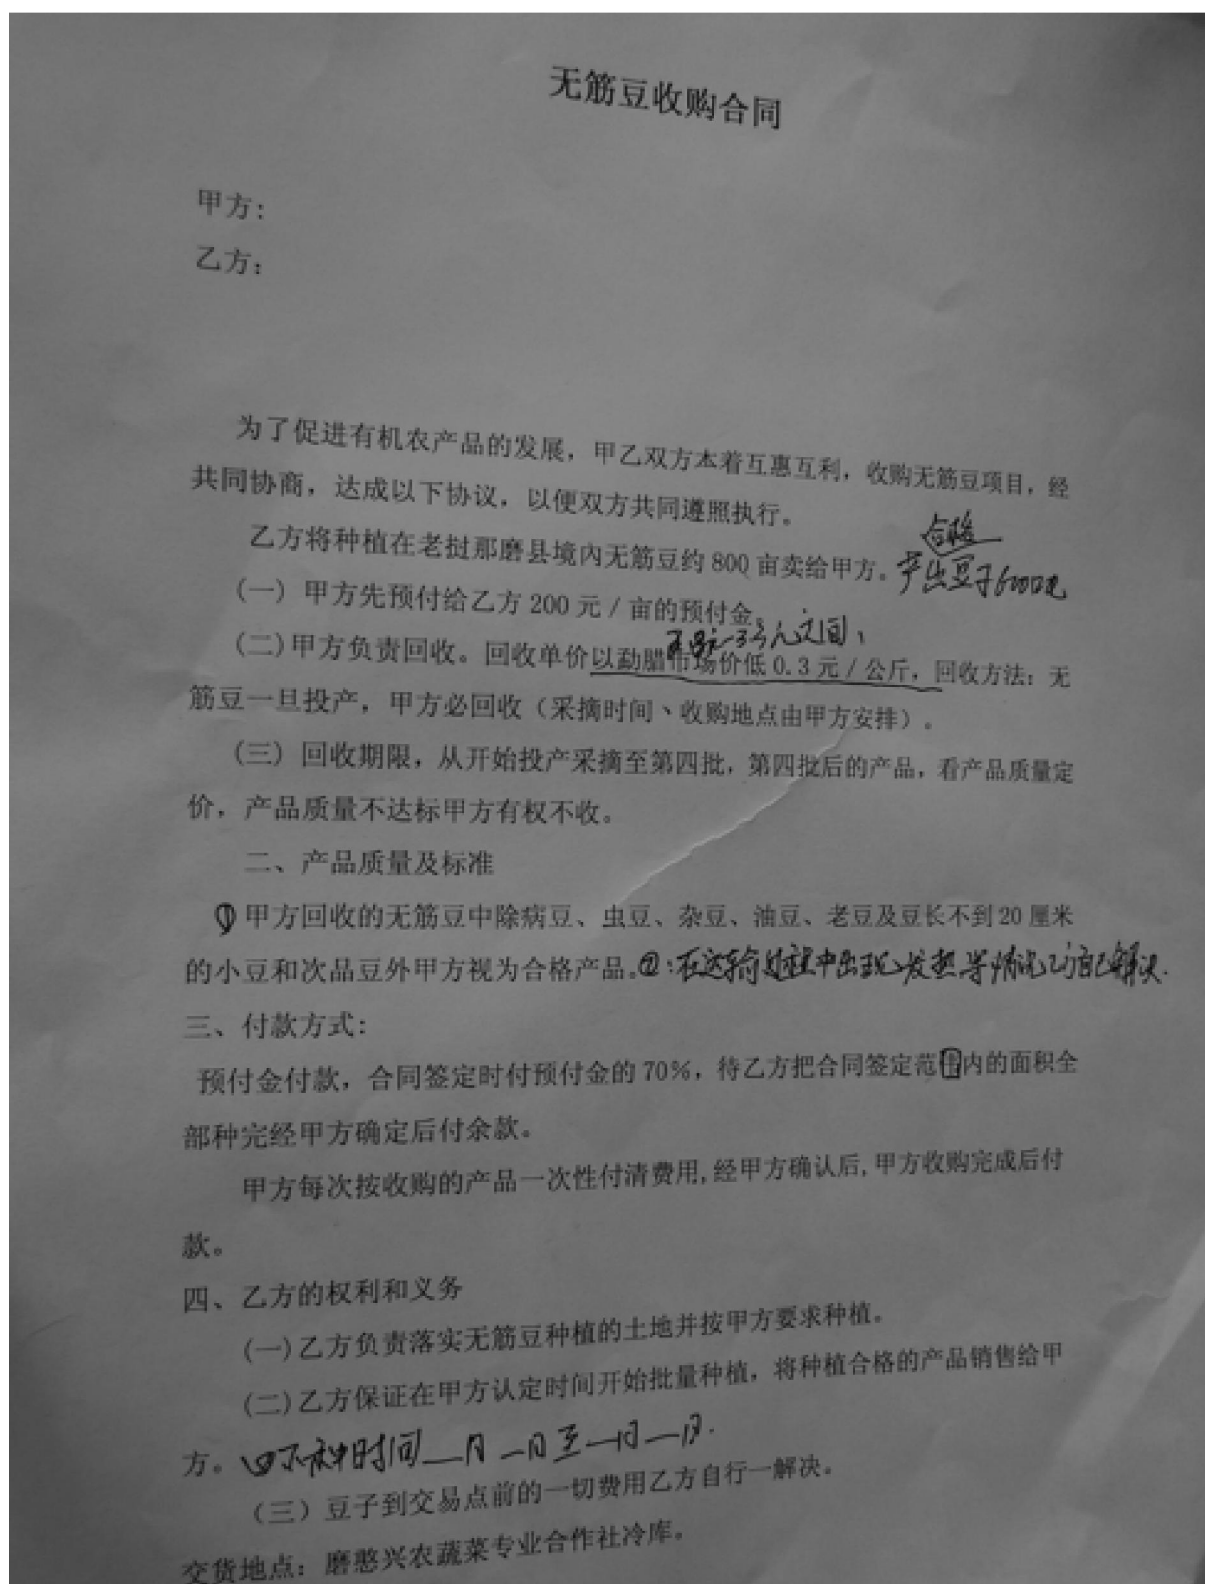 无筋豆收购合同
甲方：
乙方：
为了促进有机农产品的发展，甲乙双方本着互惠互利，收购无筋豆项目，经
共同协商，达成以下协议，以便双方共同遵照执行。
合格
乙方将种植在老挝那磨县境内无筋豆约 800 亩卖给甲方。产出豆子6000吨
(一) 甲方先预付给乙方 200 元/亩的预付金。
元之间，
(二)甲方负责回收。回收单价以勐腊市场价低 0.3 元/公斤，回收方法：无
筋豆一旦投产，甲方必回收（采摘时间、收购地点由甲方安排）。
(三) 回收期限，从开始投产采摘至第四批，第四批后的产品，看产品质量定
价，产品质量不达标甲方有权不收。
二、产品质量及标准
① 甲方回收的无筋豆中除病豆、虫豆、杂豆、油豆、老豆及豆长不到 20 厘米
的小豆和次品豆外甲方视为合格产品。②：在运输过程中出现发热等情况乙方自己解决.
三、付款方式：
预付金付款，合同签定时付预付金的 70%，待乙方把合同签定范围内的面积全
部种完经甲方确定后付余款。
甲方每次按收购的产品一次性付清费用,经甲方确认后,甲方收购完成后付
款。
四、乙方的权利和义务
(一)乙方负责落实无筋豆种植的土地并按甲方要求种植。
(二)乙方保证在甲方认定时间开始批量种植，将种植合格的产品销售给甲
方。下种时间__月__日至__月__日.
（三）豆子到交易点前的一切费用乙方自行一解决。
交货地点：磨憨兴农蔬菜专业合作社冷库。